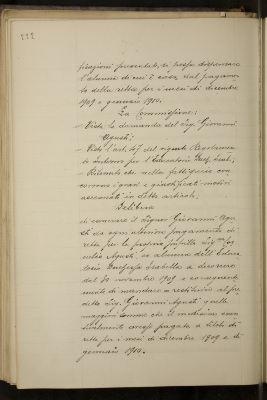 222
spirazioni presentate, si possa dispensare
l'alunna di cui è caso, dal pagamento
della retta per i mesi di dicembre
1909 e gennaio 1910.
La Commissione;
- Vista la domanda del Sig. Giovanni
Agosti;
- Visto l'art. 47 del vigente Regolamento
interno per l'Educatorio
- Ritenuto che nella fattispecie con
corrono i gravi e giustificati motivi
accennati in detto articolo;
Delibera
di esonerare il Signor Giovanni Ago
sti da ogni ulteriore pagamento di
retta per la propria figlia Sig.na
Agosti, ex alunna dell'Educa
torio Duchessa Isabella a decorrere
dal 30 novembre 1909 e conseguente
mente di mandare a restituire al pre
detto Sig. Giovanni Agosti quella
maggior somma che il medesimo even
tualmente avesse pagata a titolo di
retta per i mesi di dicembre 1909 e di
gennaio 1910.